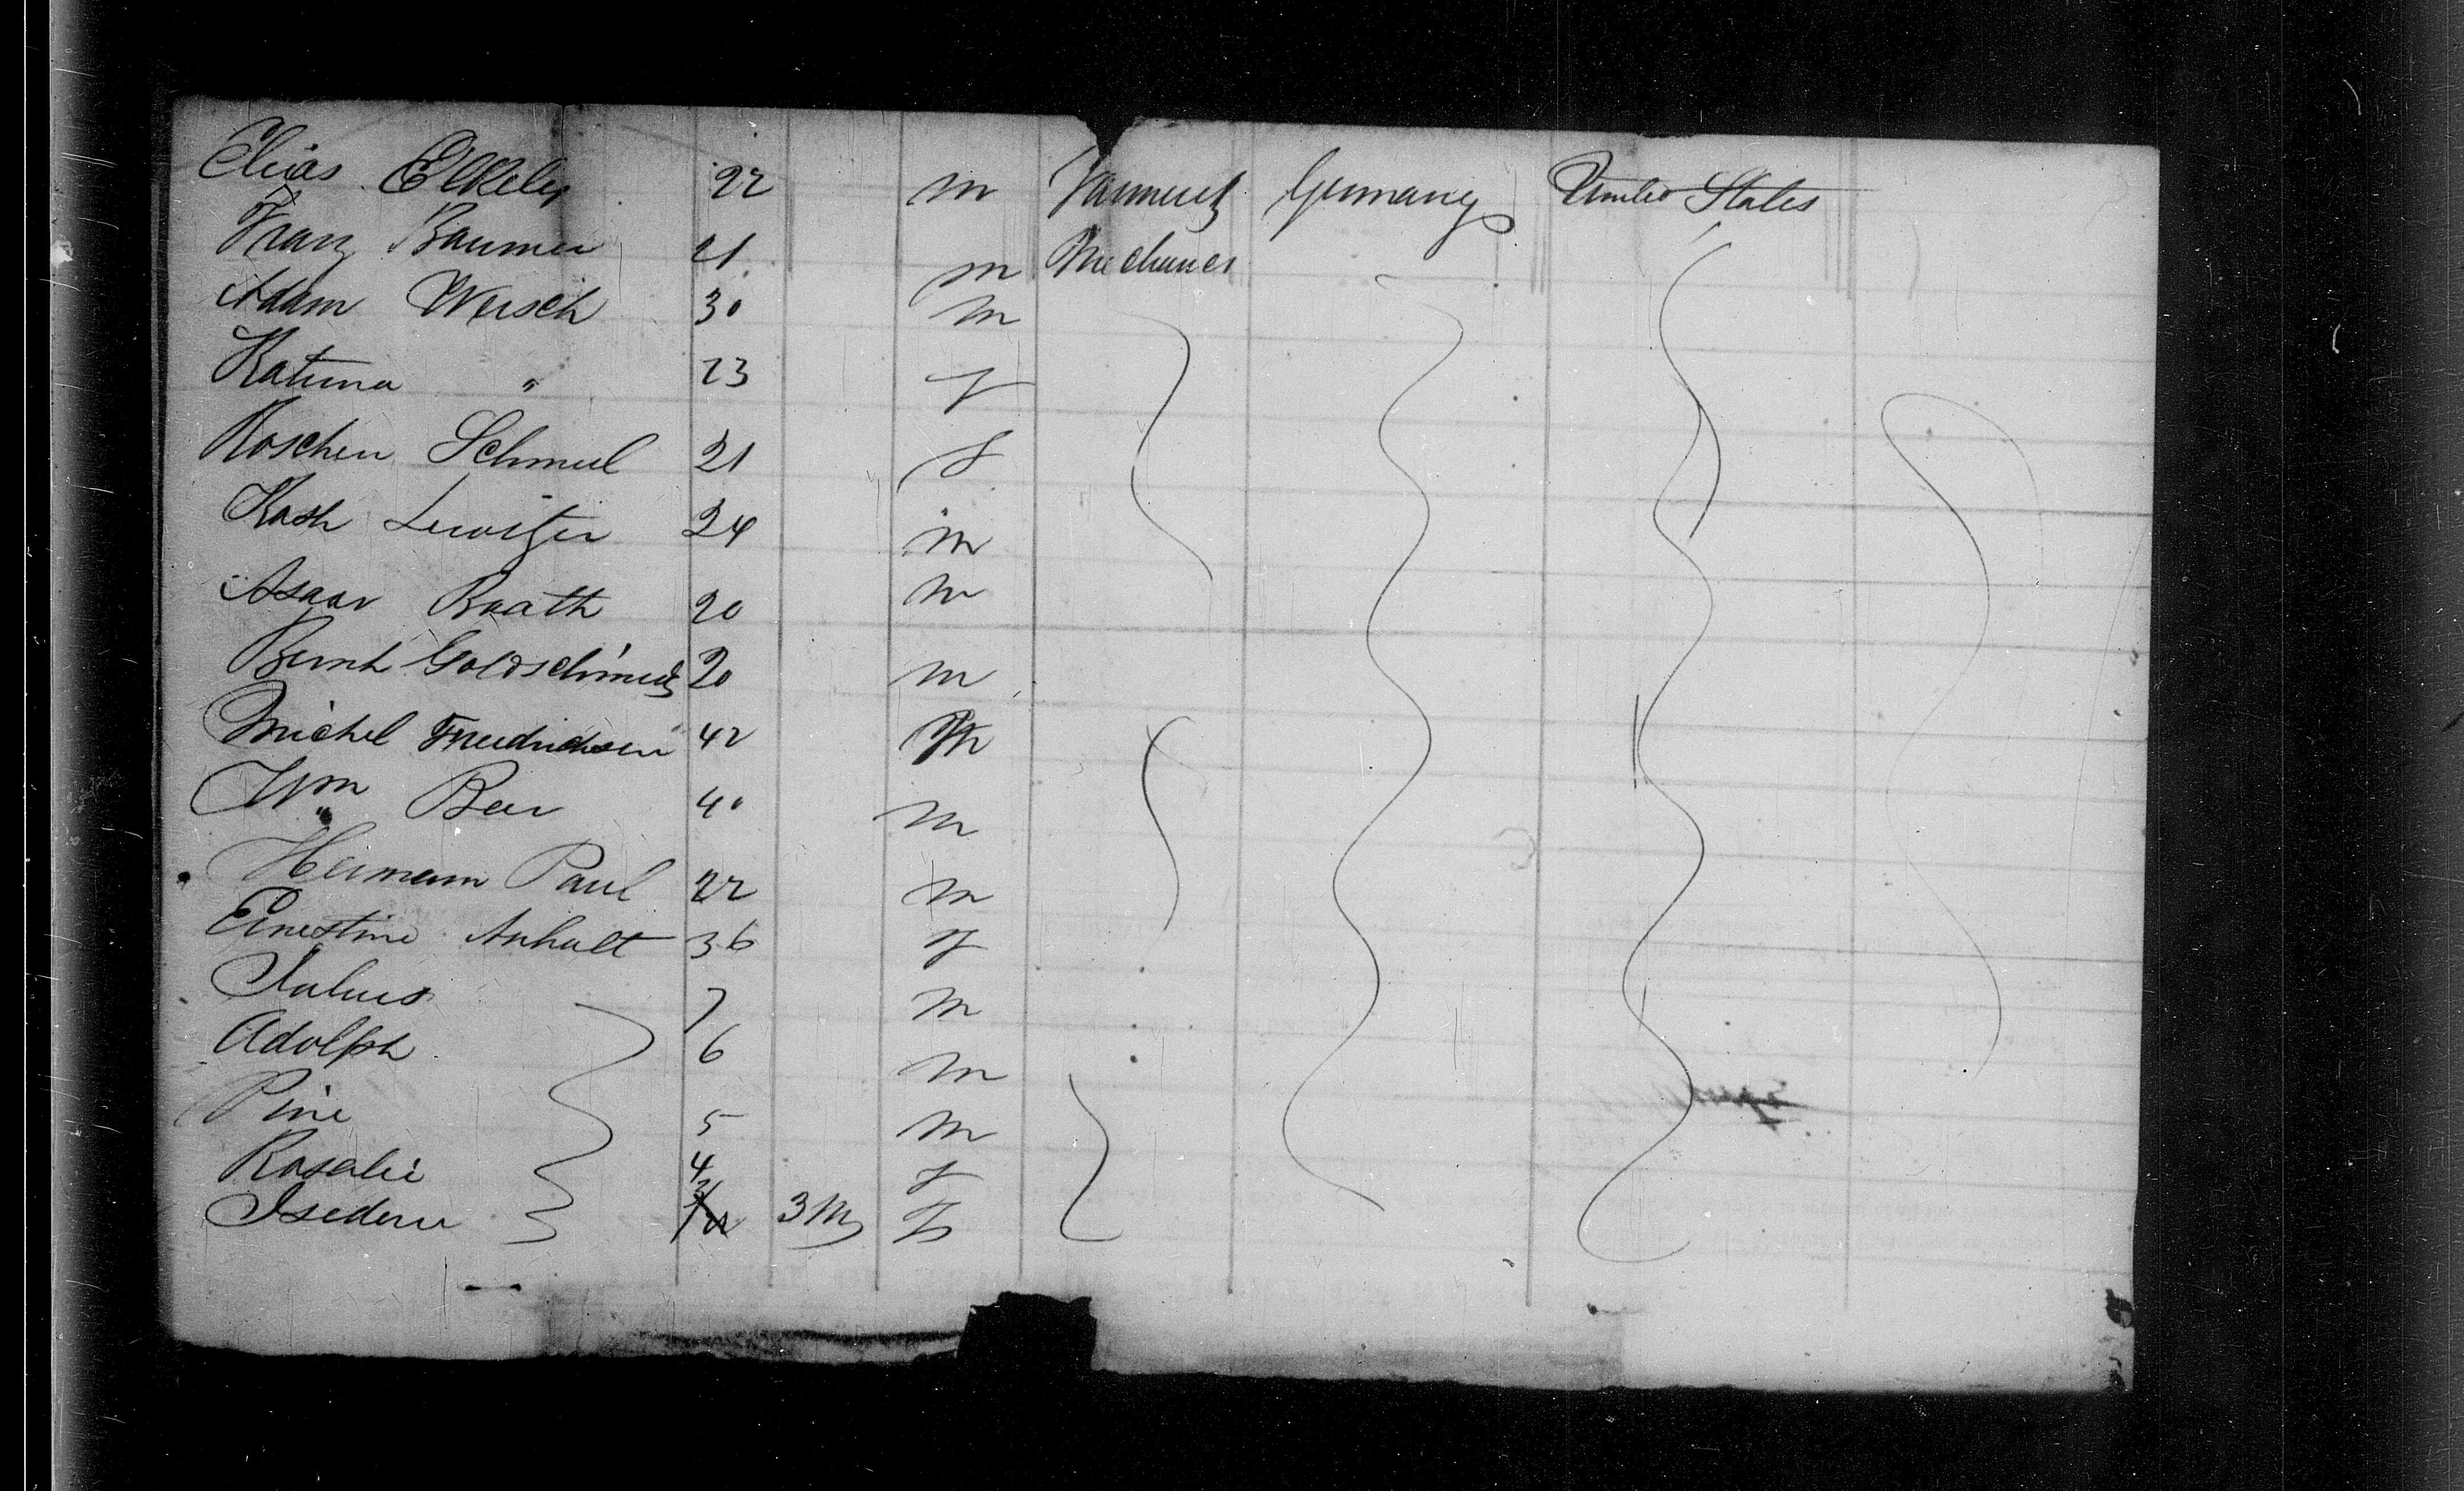 Elias Elkeles 22 m Farmer Germany United States
Franz Baumer 21 m Mechanics
Adam Wersch 30 m
Katrina " 23 f
Roschen Schmeel 21 f
Kash 24 m
Raath 20 m
Bernh Goldschmid 20 m
Michel Friedrichsen 42 m
Wm Beer 40 m
Hermann Paul 22 m
Ernestine Anhalt 36 f
Julius 7 m
Adolph 6 m
Pine 5 m
Rosalie 4 f
3 M f